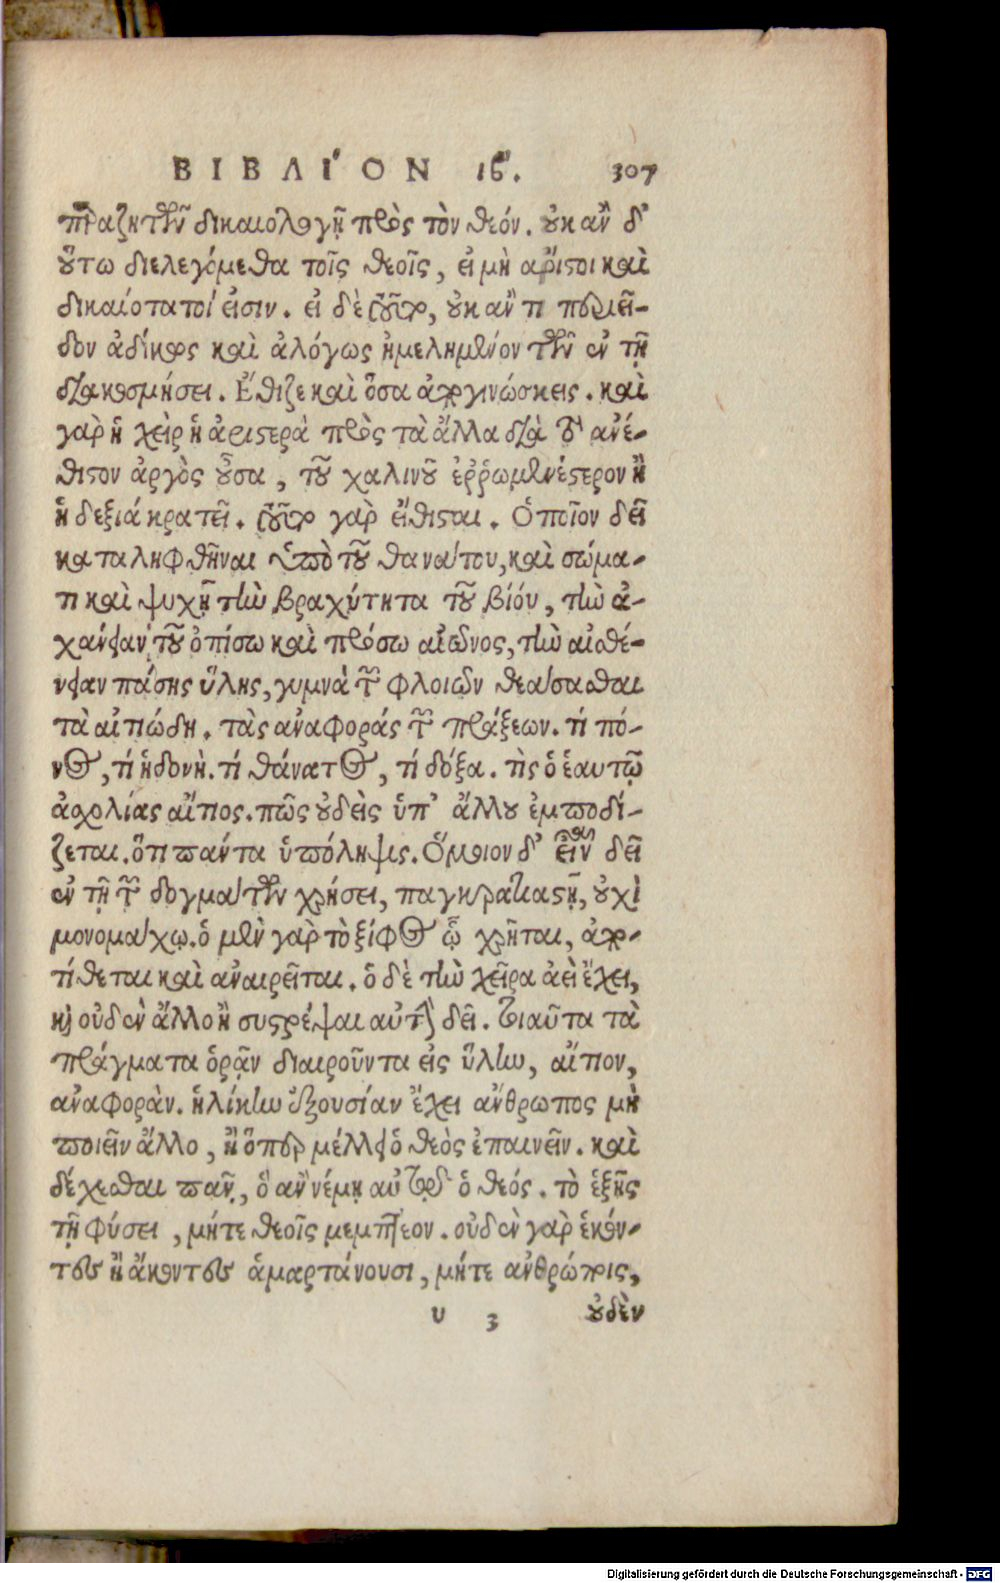 ΒΙΒΛΙ´ΟΝ ιβ. 307
παραζητῶν δικαιολογῇ πρὸς τὸν θεόν. οὐκ ἂν δ'
οὕτω διελεγόμεθα τοῖς θεοῖς, εἰ μὴ ἄριστοι καὶ
δικαιότατοί εἰσιν. εἰ δὲ τοῦτο, οὐκ ἄν τι περιεῖ-
δον ἀδίκως καὶ ἀλόγως ἠμελημένον τῶν ἐν τῇ
διακοσμήσει. Ἔθιζε καὶ ὅσα ἀπογινώσκεις. καὶ
γὰρ ἡ χεὶρ ἡ ἀριστερὰ πρὸς τὰ ἄλλα διὰ τὸ ἀνέ-
θιστον ἀργὸς οὖσα, τοῦ χαλινοῦ ἐῤῥωμενέστερον ἢ
ἡ δεξιά κρατεῖ. τοῦτο γὰρ εἴθισται. Ὁποῖον δεῖ
καταληφθῆναι ὑπὸ τοῦ θανάτου, καὶ σώμα-
τι καὶ ψυχῇ τὴν βραχύτητα τοῦ βίου, τὴν ἀ-
χάνειαν τοῦ ὀπίσω καὶ πρόσω αἰῶνος, τὴν ἀσθέ-
νειαν πάσης ὕλης, γυμνὰ τῶν φλοιῶν θεάσασθαι
τὰ αἰτιώδη. τὰς ἀναφοράς τῶν πράξεων. τί πό-
νος, τί ἡδονὴ. τί θάνατος, τί δόξα. τὶς ὁ ἑαυτῷ
ἀσχολίας αἴτιος. πῶς οὐδεὶς ὑπ' ἄλλου ἐμποδί-
ζεται. ὅτι πάντα ὑπόληψις. Ὅμοιον δ' εἶναι δεῖ
ἐν τῇ τῶν δογμάτων χρήσει, παγκρατιαστῇ, οὐχὶ
μονομάχῳ. ὁ μὲν γὰρ τὸ ξίφος ᾧ χρῆται, ἀπο-
τίθεται καὶ ἀναιρεῖται. ὁ δὲ τὴν χεῖρα ἀεὶ ἔχει,
καὶ οὐδὲν ἄλλο ἢ συστρέψαι αὐτὴν δεῖ. Τοιαῦτα τὰ
πράγματα ὁρᾷν διαιροῦντα εἰς ὕλην, αἴτιον,
ἀναφορὰν. ἡλίκην ἐξουσίαν ἔχει ἄνθρωπος μὴ
ποιεῖν ἄλλο, ἢ ὅπερ μέλλει ὁ θεὸς ἐπαινεῖν. καὶ
δέχεσθαι πᾶν, ὃ ἂν νέμῃ αὐτῷ ὁ θεός. τὸ ἑξῆς
τῇ φύσει, μήτε θεοῖς μεμπτέον. οὐδὲν γὰρ ἑκόν-
τες ἢ ἄκοντες ἁμαρτάνουσι, μήτε ἀνθρώποις,
υ 3 οὐδὲν
Digitalisierung gefördert durch die Deutsche Forschungsgemeinschaft - DFG